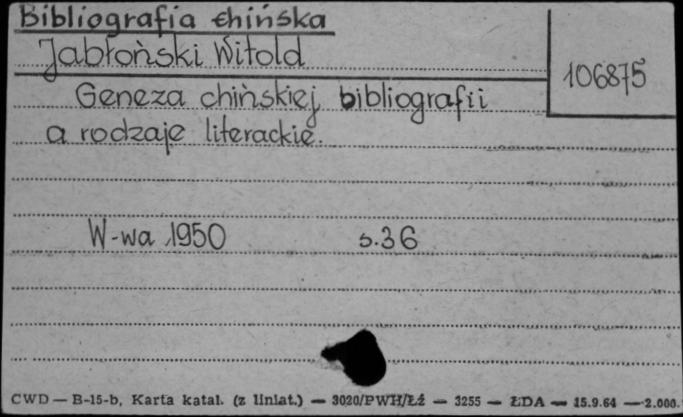 Bibliografia chińska
Jabłoński Witold
106875
Geneza chińskiej bibliografii
a rodzaje literackie.
W-wa 1950 s.36
CWD — B-15-b, Karta katal. (z liniat.) — 3020/PWH/Łź — 3255 — ŁDA — 15.9.64 — 2.000.